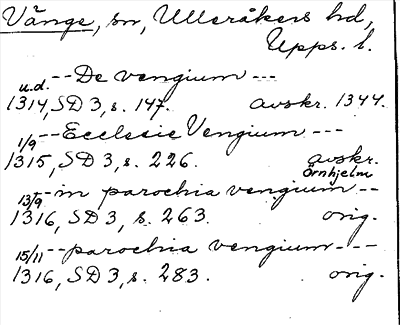 Vänge, sn, Ulleråkers hd,
Upps. l.
--De vengium---
u.d.
1314, SD 3, s. 147. avskr. 1344.
--Ecclesie Vengium---
1/9
1315, SD 3, s. 226. avskr.
Örnhjelm
--in parochia vengium--
13/9
1316, SD 3, s. 263. orig.
--parochia vengium---
15/11
1316, SD 3, s. 283. orig.